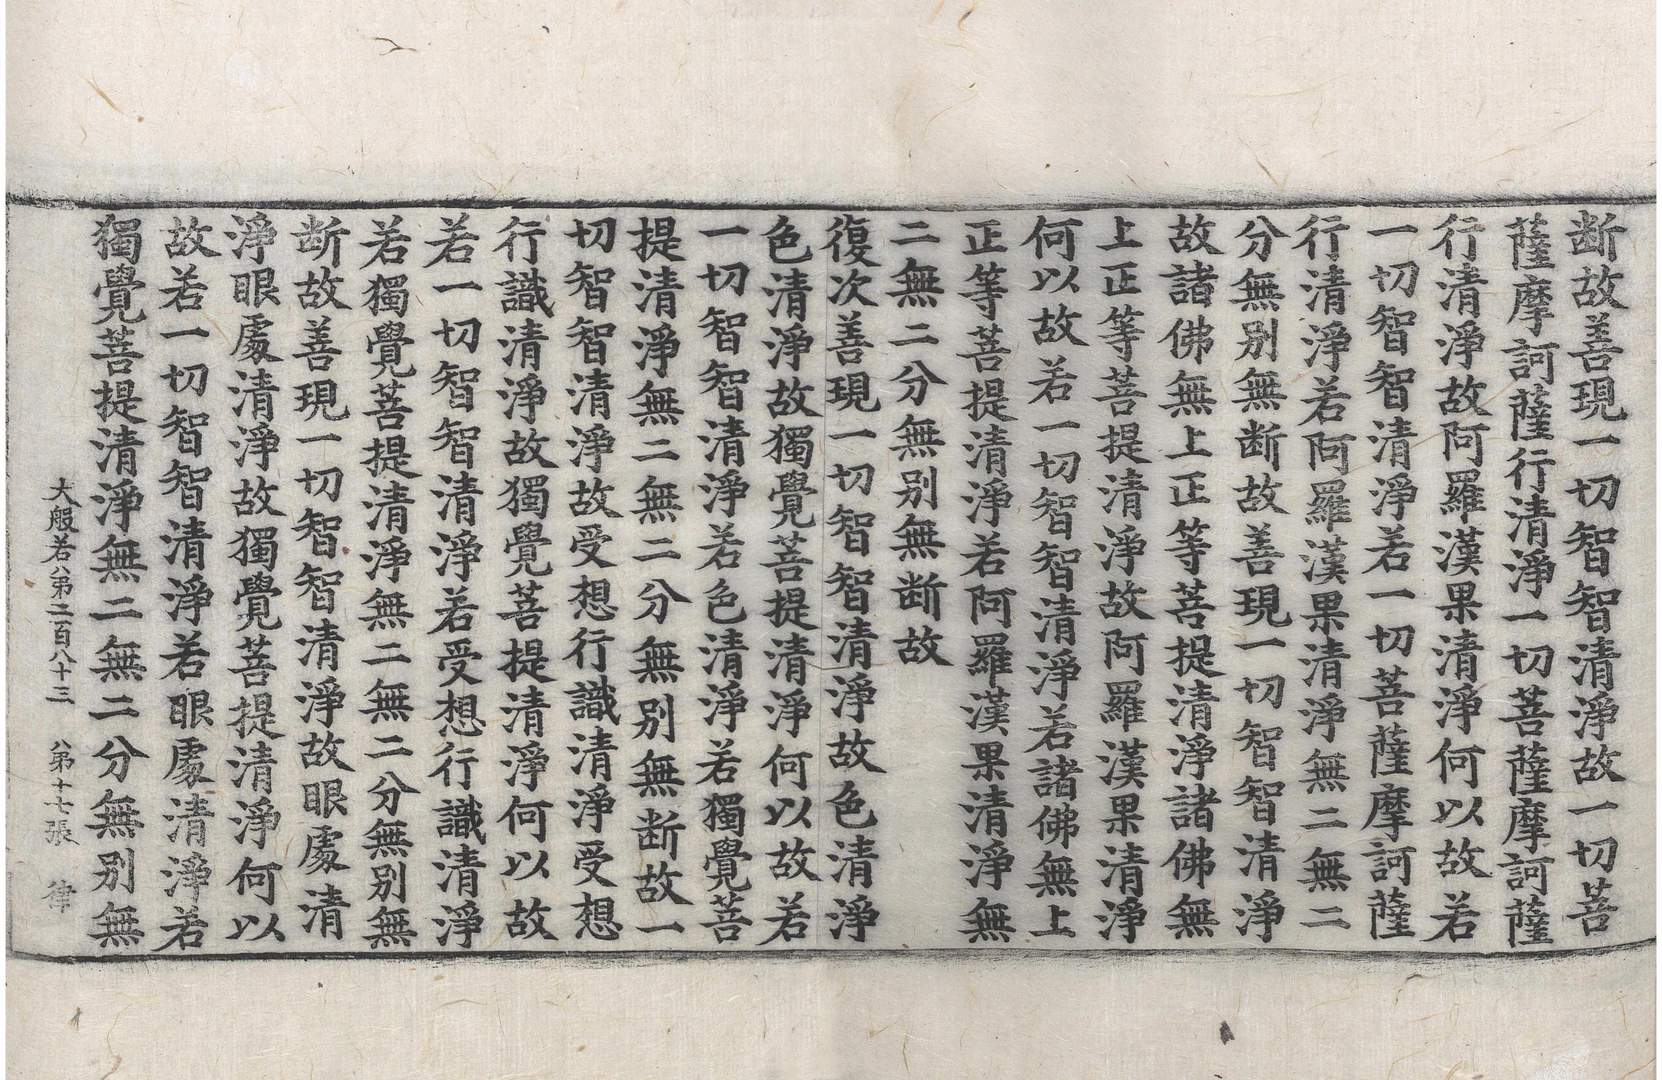 断故善現一切智智清淨故一切菩
薩摩訶薩行清淨一切菩薩摩訶薩
行清淨故阿羅漢果清淨何以故若
一切智智清淨若一切菩薩摩訶薩
行清淨若阿羅漢果清淨無二無二
分無别無断故善現一切智智清淨
故諸佛無上正等菩提清淨諸佛無
上正等菩提清淨故阿羅漢果清淨
何以故若一切智智清淨若諸佛無上
正等菩提清淨若阿羅漢果清淨無
二無二分無别無断故
復次善現一切智智清淨故色清淨
色清淨故獨覺菩提清淨何以故若
一切智智清淨若色清淨若獨覺菩
提清淨無二無二分無别無断故一
切智智清淨故受想行識清淨受想
行識清淨故獨覺菩提清淨何以故
若一切智智清淨若受想行識清淨
若獨覺菩提清淨無二無二分無别無
断故善現一切智智清淨故眼處清
淨眼處清淨故獨覺菩提清淨何以
故若一切智智清淨若眼處清淨若
獨覺菩提清淨無二無二分無别無
大般若八第二百八十三 八第十七張 律